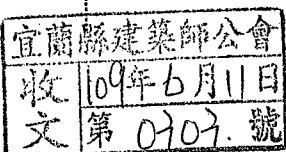 宜蘭縣建築師公會
收文
109年6月11日
第0707.號